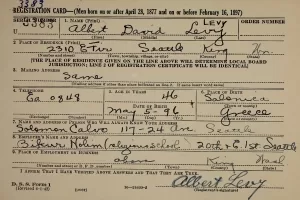 3383
REGISTRATION CARD—(Men born on or after April 28, 1877 and on or before February 16, 1897)
SERIAL NUMBER 1. NAME (Print) LEVY ORDER NUMBER
Albert David Levy
(First) (Middle) (Last)
2. PLACE OF RESIDENCE (Print)
2310 E Fir Seattle King Wn.
(THE PLACE OF RESIDENCE GIVEN ON THE LINE ABOVE WILL DETERMINE LOCAL BOARD
JURISDICTION; LINE 2 OF REGISTRATION CERTIFICATE WILL BE IDENTICAL)
3. MAILING ADDRESS
Same
4. TELEPHONE 5. AGE IN YEARS 6. PLACE OF BIRTH
46 Salonica
Ea 0848 DATE OF BIRTH
May 5 - 96 Greece
7. NAME AND ADDRESS OF PERSON WHO WILL ALWAYS KNOW YOUR ADDRESS
Solomon Calvo 117-24 Ave Seattle
8. EMPLOYER'S NAME AND ADDRESS
Bikur Holim 20th & E. Fir Seattle
9. PLACE OF EMPLOYMENT OR BUSINESS
above King Wash
I AFFIRM THAT I HAVE VERIFIED ABOVE ANSWERS AND THAT THEY ARE TRUE.
D. S. S. Form 1
Albert Levy